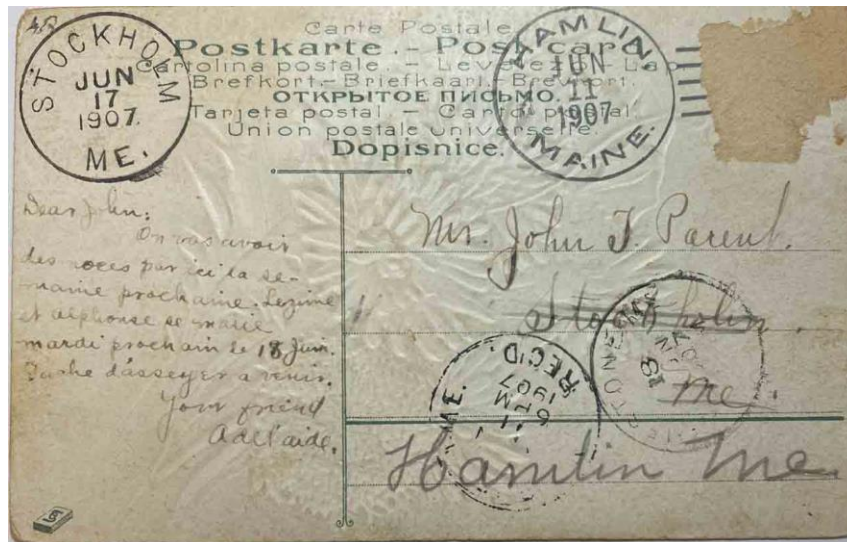 STOCKHOLM
JUN
17
1907.
ME.
Carte Postale
Postkarte. - Post card
Cartolina postale. - Levelező-Lap
Brefkort.-Briefkaart.-Brevkort.
ОТКРЫТОЕ ПИСЬМО.
Tarjeta postal - Cartão postal.
Union postale universelle.
Dopisnice.
HAMLIN.
JUN
11
1907
MAINE.
Dear John:
On vas avoir
des noces par ici la se-
maine prochaine. Lezime
et alphonse se marie
mardi prochain le 18 Juin.
Tache d'asseyer a venir.
Your friend
Adelaide.
Mr. John T. Parent.
Stockholm.
Me.
REC'D.
1907
6 PM
ME.
18
Hamlin Me.